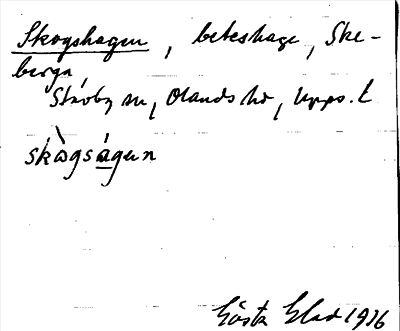 Skogshagen, beteshage, Ske-
berga,
Stavby sn, Olands hd, Upps. l
skògságen
Gösta Elad 1916